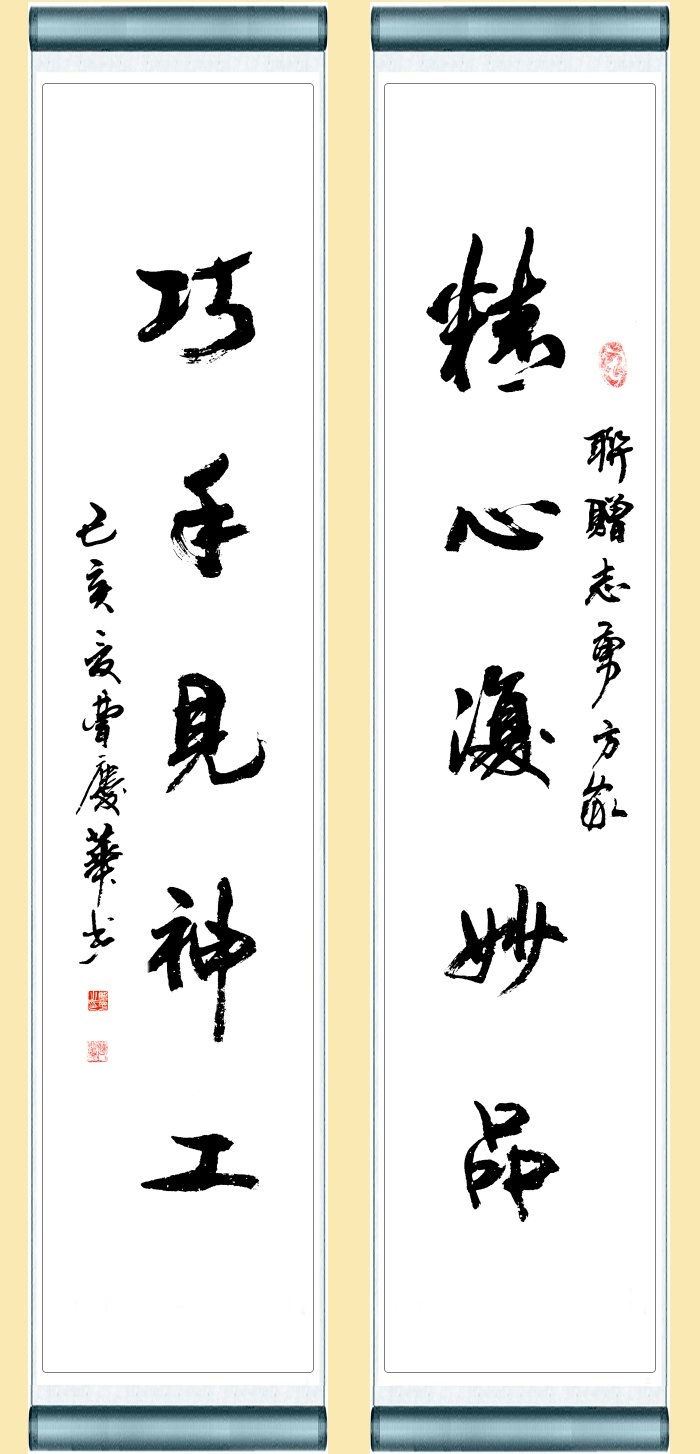 聯贈志勇方家
精心妙品
巧手見神工
己亥夏曹慶華書